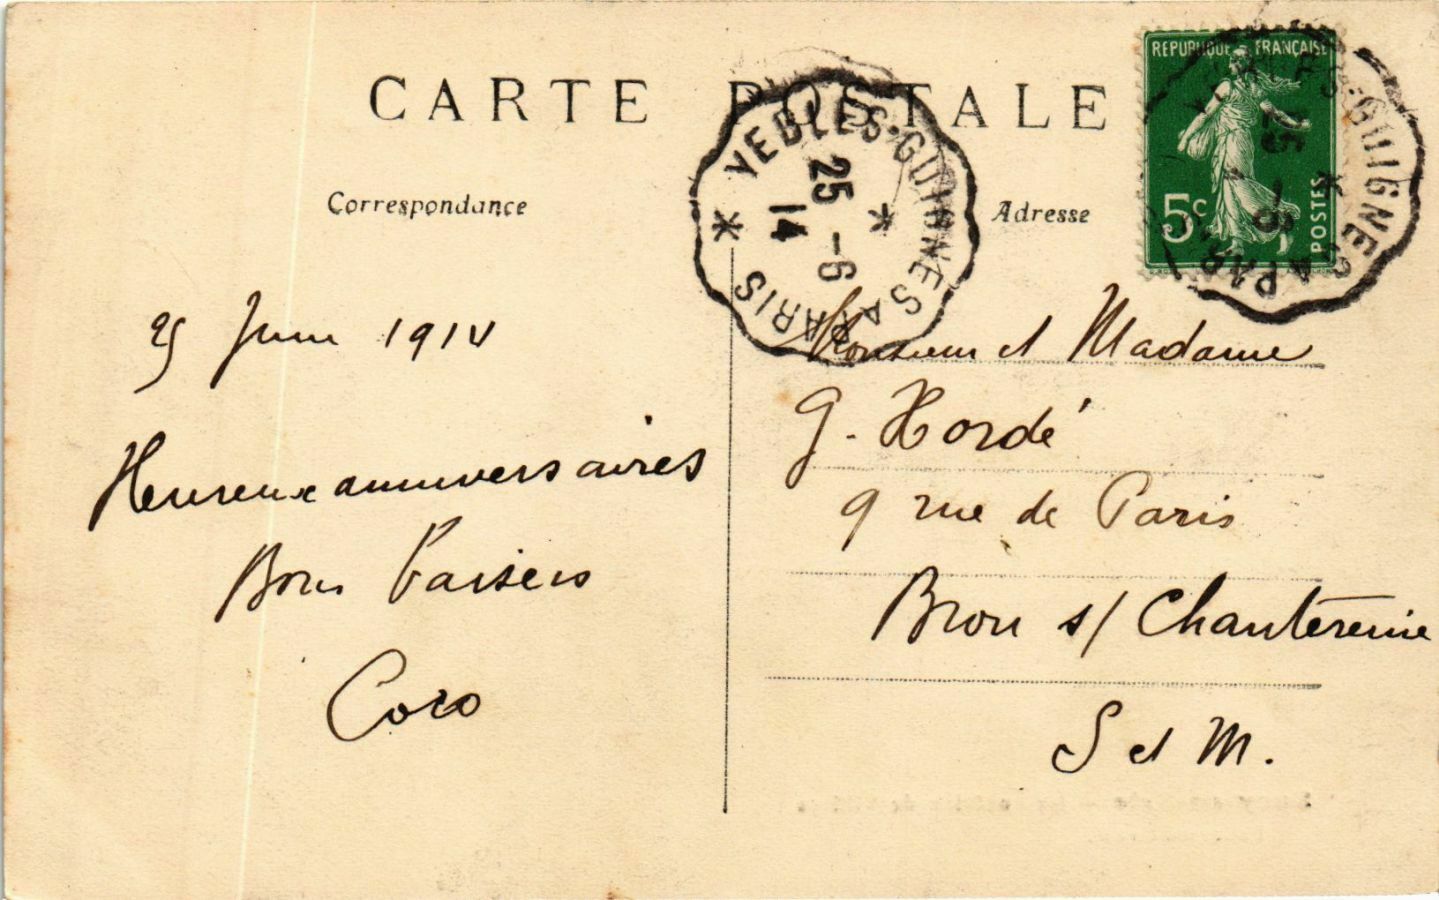 CARTE POSTALE
Correspondance
Adresse
REPUBLIQUE FRANÇAISE
5c
POSTES
YEBLES-GUIGNES A PARIS
25 -6
14
S-GUIGNES A PAR
25 -6
25 Juin 1914
Heureux anniversaires
Bons baisers
Coco
Monsieur et Madame
G. Hordé
9 rue de Paris
Brou s/ Chantereine
S et M.